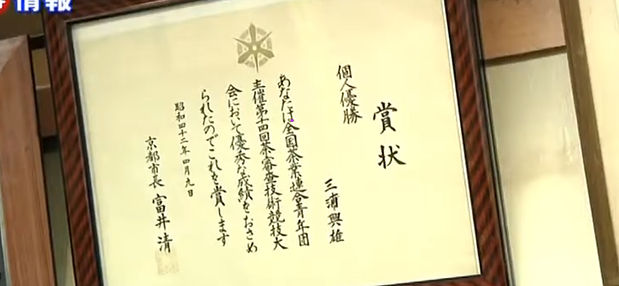 情報
賞状
個人優勝
三浦興雄
あなたは全国茶業連合青年団
主催第十四回茶審査技術競技大
会において優秀な成績をおさめ
られたのでこれを賞します
昭和四十二年四月九日
京都市長 富井清